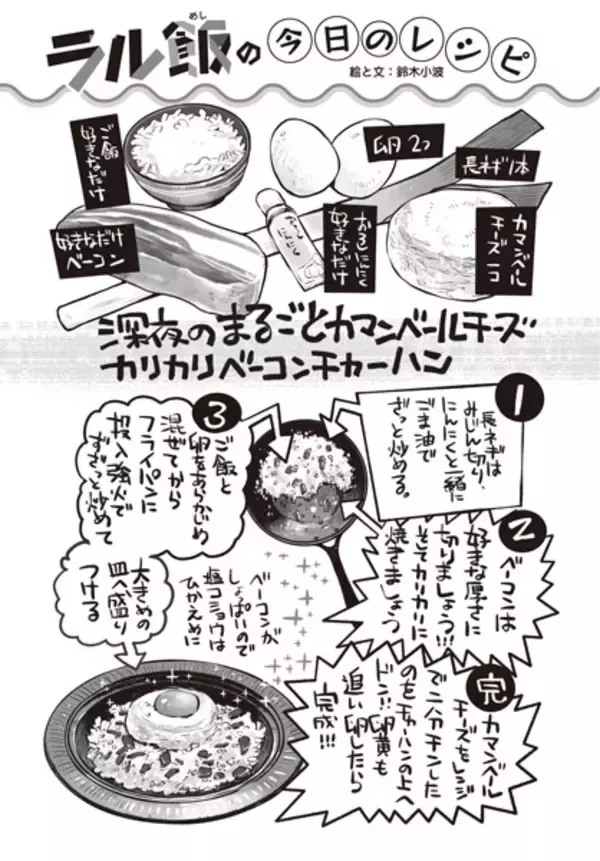 めし
ラル飯の今日のレシピ
絵と文：鈴木小波
ご飯
好きなだけ
卵2つ
長ネギ1本
好きなだけ
ベーコン
おろしにんにく
好きなだけ
カマンベール
チーズ一コ
深夜のまるごとカマンベールチーズ
カリカリベーコンチャーハン
1
長ネギは
みじん切り、
にんにくと一緒に
ごま油で
ざっと炒める。
2
ベーコンは
好きな厚さに
切りましょう!!!
そしてカリカリに
焼きましょう
3
ご飯と
卵をあらかじめ
混ぜてから
フライパンに
投入強火で
ずざっと炒めて
ベーコンが
しょっぱいので
塩コショウは
ひかえめに
大きめの
皿へ盛り
つける
完
カマンベール
チーズをレンジ
で二分チンした
のをチャーハンの上へ
ドン!!卵黄も
追い卵したら
完成!!!